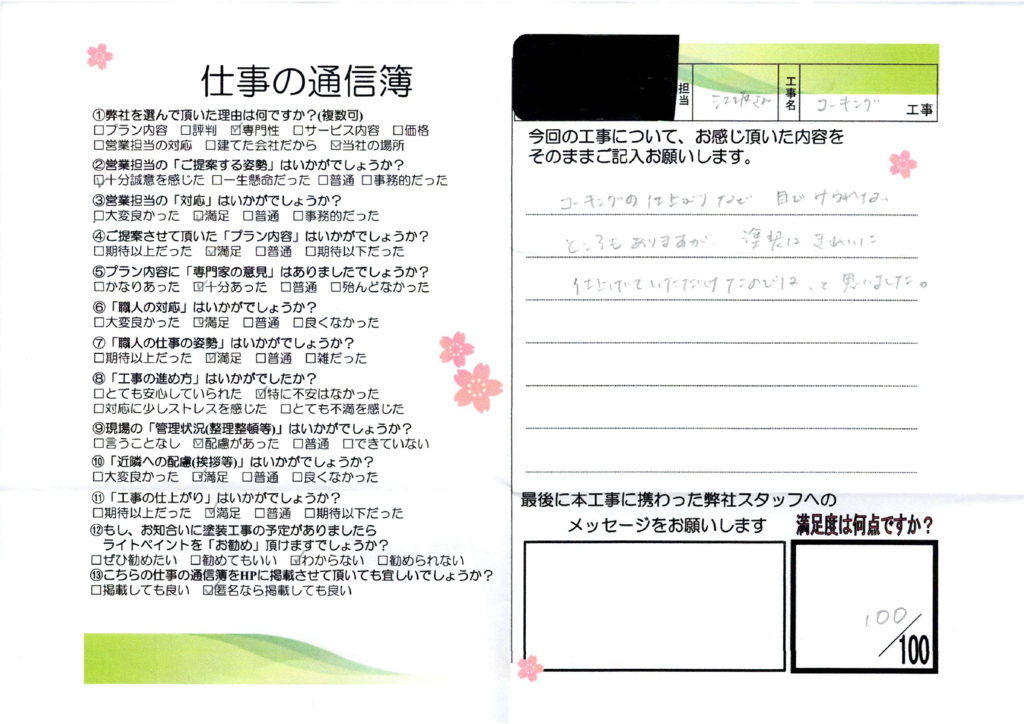 仕事の通信簿
①弊社を選んで頂いた理由は何ですか?(複数可)
□プラン内容 □評判 ☑専門性 □サービス内容 □価格
□営業担当の対応 □建てた会社だから ☑当社の場所
②営業担当の「ご提案する姿勢」はいかがでしょうか?
☑十分誠意を感じた □一生懸命だった □普通 □事務的だった
③営業担当の「対応」はいかがでしょうか?
□大変良かった ☑満足 □普通 □事務的だった
④ご提案させて頂いた「プラン内容」はいかがでしょうか?
□期待以上だった ☑満足 □普通 □期待以下だった
⑤プラン内容に「専門家の意見」はありましたでしょうか?
□かなりあった ☑十分あった □普通 □殆んどなかった
⑥「職人の対応」はいかがでしょうか?
□大変良かった ☑満足 □普通 □良くなかった
⑦「職人の仕事の姿勢」はいかがでしょうか?
□期待以上だった ☑満足 □普通 □雑だった
⑧「工事の進め方」はいかがでしたか?
□とても安心していられた ☑特に不安はなかった
□対応に少しストレスを感じた □とても不満を感じた
⑨現場の「管理状況(整理整頓等)」はいかがでしょうか?
□言うことなし ☑配慮があった □普通 □できていない
⑩「近隣への配慮(挨拶等)」はいかがでしょうか?
□大変良かった ☑満足 □普通 □良くなかった
⑪「工事の仕上がり」はいかがでしょうか?
□期待以上だった ☑満足 □普通 □期待以下だった
⑫もし、お知合いに塗装工事の予定がありましたら
ライトペイントを「お勧め」頂けますでしょうか?
□ぜひ勧めたい □勧めてもいい ☑わからない □勧められない
⑬こちらの仕事の通信簿をHPに掲載させて頂いても宜しいでしょうか?
□掲載しても良い ☑匿名なら掲載しても良い
担当 さん 工事名 コーキング 工事
今回の工事について、お感じ頂いた内容を
そのままご記入お願いします。
コーキングの仕上がりなど 見うけられない
ところもありますが、塗装は きれいに
仕上げていただけたのでは、と思いました。
最後に本工事に携わった弊社スタッフへの
メッセージをお願いします
満足度は何点ですか?
100/100